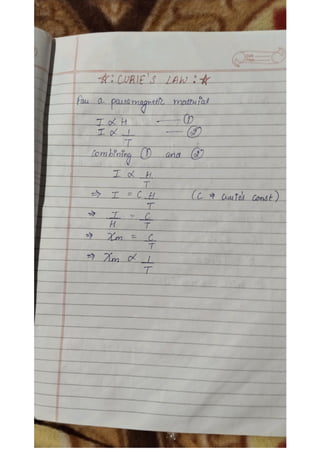 ☆: CURIE'S LAW :☆
For a paramagnetic material
I ∝ H —— ①
I ∝ 1/T —— ②
combining ① and ②
I ∝ H/T
⇒ I = C H/T (C → curie's const)
⇒ I/H = C/T
⇒ χm = C/T
⇒ χm ∝ 1/T